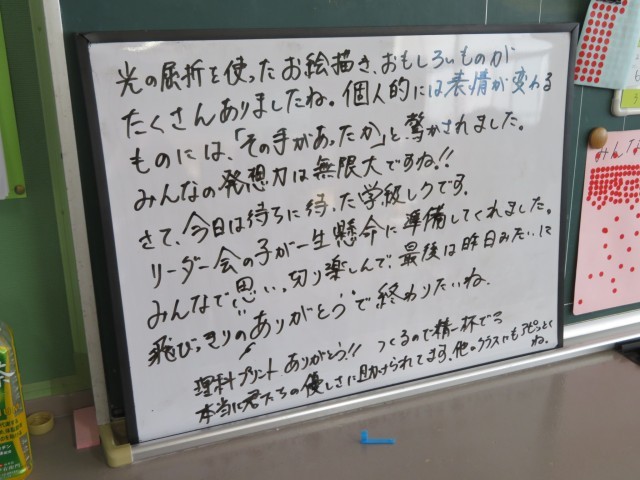 光の屈折を使ったお絵描き、おもしろいものが
たくさんありましたね。個人的には表情が変わる
ものには、「その手があったか」と驚かされました。
みんなの発想力は無限大ですね!!
さて、今日は待ちに待った学級レクです。
リーダー会の子が一生懸命に準備してくれました。
みんなで思いっ切り楽しんで、最後は昨日みたいに
飛びっきりのありがとう。で終わりたいね。
理科プリント ありがとう!! つくるので精一杯でう
本当に君たちの優しさに助けられてます。他のクラスにもアピっとく
ね。
みんな